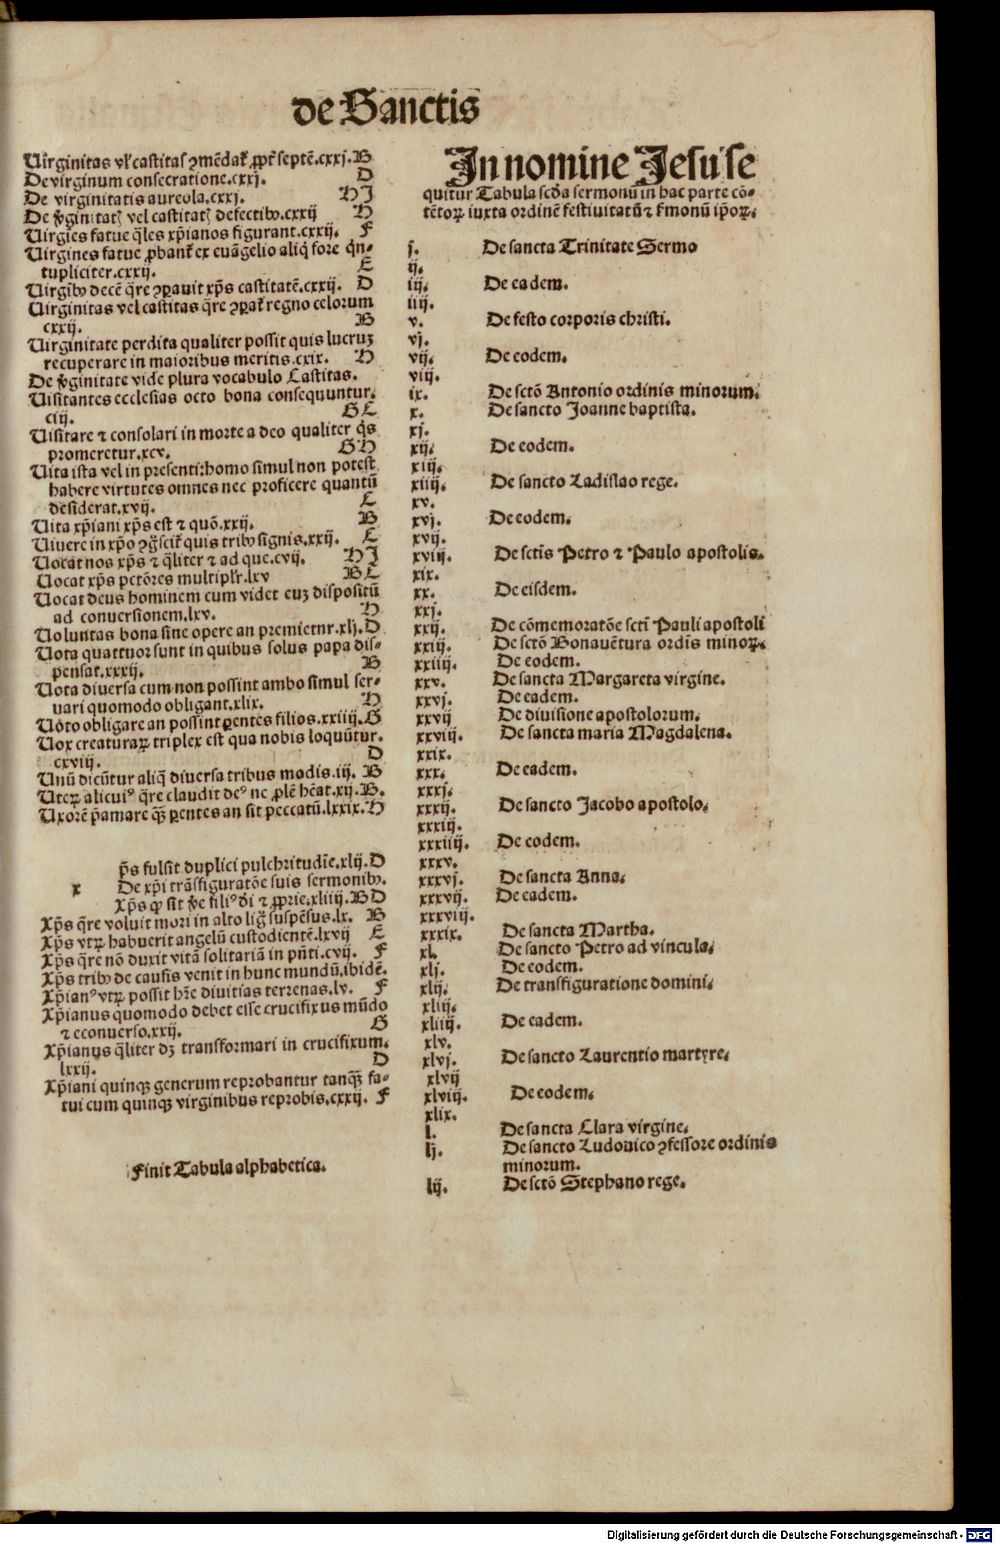 de Sanctis
Uirginitas vl' castitas ꝯmēdat̄ ꝓpt̄ septē.cxxj. B
De virginum consecratione.cxxj. D
De virginitatis aureola.cxxj. H J
De v̄ginitatꝭ vel castitatꝭ defectibꝰ.cxxij H
Uirgies fatue q̄les xp̄ianos figurant.cxxij. F
Uirgines fatue ꝓbant̄ ex euāgelio aliq̄ fore qn̄-
tupliciter.cxxij. E
Uirgībꝰ decē q̄re ꝯꝑauit xp̄s castitatē.cxxij. D
Uirginitas vel castitas q̄re ꝯꝑat̄ regno celorum
cxxij. B
Uirginitate perdita qualiter possit quis lucruꝫ
recuperare in maioribus meritis.cxix. H
De v̄ginitate vide plura vocabulo Castitas.
Uisitantes ecclesias octo bona consequuntur.
ciij. B C
Uisitare ⁊ consolari in morte a deo qualiter q̄s
promeretur.xcv. G H
Uita ista vel in presenti:homo simul non potest
habere virtutes omnes nec proficere quantū
desiderat.xvij. C
Uita xp̄iani xp̄s est ⁊ quō.xxij. B
Uiuere in xp̄o ꝯḡscit̄ quis tribꝰ signis.xxij. C
Uocat nos xp̄s ⁊ q̄liter ⁊ ad que.cvij. H J
Uocat xp̄s pctōres multipl'r.lxv B C
Uocat deus hominem cum videt euꝫ dispositū
ad conuersionem.lxv. H
Uoluntas bona sine opere an premietur.xlj. D
Uota quattuor sunt in quibus solus papa dis-
pensat.xxxij. B
Uota diuersa cum non possint ambo simul ser-
uari quomodo obligant.xlix. H
Uōto obligare an possint ꝑentes filios.xxiiij. G
Uox creaturaꝝ triplex est qua nobis loquūtur.
cxviij. D
Unū dicūtur aliq̄ diuersa tribus modis.iij. B
Uteꝝ alicuiꝰ q̄re claudit deꝰ ne ꝓlē hēat.xij. B.
Uxorē p̄amare qȝ̄ ꝑentes an sit peccatū.lxxix. H
p̄s fulsit duplici pulchritudīe.xlij. D
x De xp̄i trāsfiguratōe suis sermonibꝰ.
Xp̄s ꝙ sit v̄e filiꝰ dī ⁊ ꝓprie.xliiij. B D
Xp̄s q̄re voluit mori in alto liḡ suspēsus.lx. B
Xp̄s vtꝝ habuerit angelū custodientē.lxvij E
Xp̄s q̄re nō duxit vitā solitariā in pn̄ti.cvij. F
Xp̄s tribꝰ de causis venit in hunc mundū.ibidē.
Xp̄ianꝰ vtꝝ possit hr̄e diuitias terrenas.lv. F
Xp̄ianus quomodo debet esse crucifixus mūdo
⁊ econuerso.xxij. G
Xp̄ianus q̄liter dꝫ transformari in crucifixum.
lxxij. D
Xp̄iani quinqꝫ generum reprobantur tanqȝ̄ fa-
tui cum quinqꝫ virginibus reprobis.cxxij. F
Finit Tabula alphabetica.
In nomine Jesu se
quitur Tabula scd'a sermonū in hac parte cō-
tētoꝝ iuxta ordinē festiuitatū ⁊ s̄monū ip̄oꝝ.
j. De sancta Trinitate Sermo
ij.
iij. De eadem.
iiij.
v. De festo corporis christi.
vj.
vij. De eodem.
viij.
ix. De sctō Antonio ordinis minorum.
x. De sancto Joanne baptista.
xj.
xij. De eodem.
xiij.
xiiij. De sancto Ladislao rege.
xv.
xvj. De eodem.
xvij.
xviij. De sctīs Petro ⁊ Paulo apostolis.
xix.
xx. De eisdem.
xxj.
xxij. De cōmemoratōe sctī Pauli apostoli
xxiij. De sctō Bonauētura ordīs minoꝝ.
xxiiij. De eodem.
xxv. De sancta Margareta virgine.
xxvj. De eadem.
xxvij De diuisione apostolorum.
xxviij. De sancta maria Magdalena.
xxix.
xxx. De eadem.
xxxj.
xxxij. De sancto Jacobo apostolo.
xxxiij.
xxxiiij. De eodem.
xxxv.
xxxvj. De sancta Anna.
xxxvij. De eadem.
xxxviij.
xxxix. De sancta Martha.
xl. De sancto Petro ad vincula.
xlj. De eodem.
xlij. De transfiguratione domini.
xliij.
xliiij. De eadem.
xlv.
xlvj. De sancto Laurentio martyre.
xlvij
xlviij. De eodem.
xlix.
l. De sancta Clara virgine.
lj. De sancto Ludouico ꝯfessore ordinis
minorum.
lij. De sctō Stephano rege.
Digitalisierung gefördert durch die Deutsche Forschungsgemeinschaft - DFG